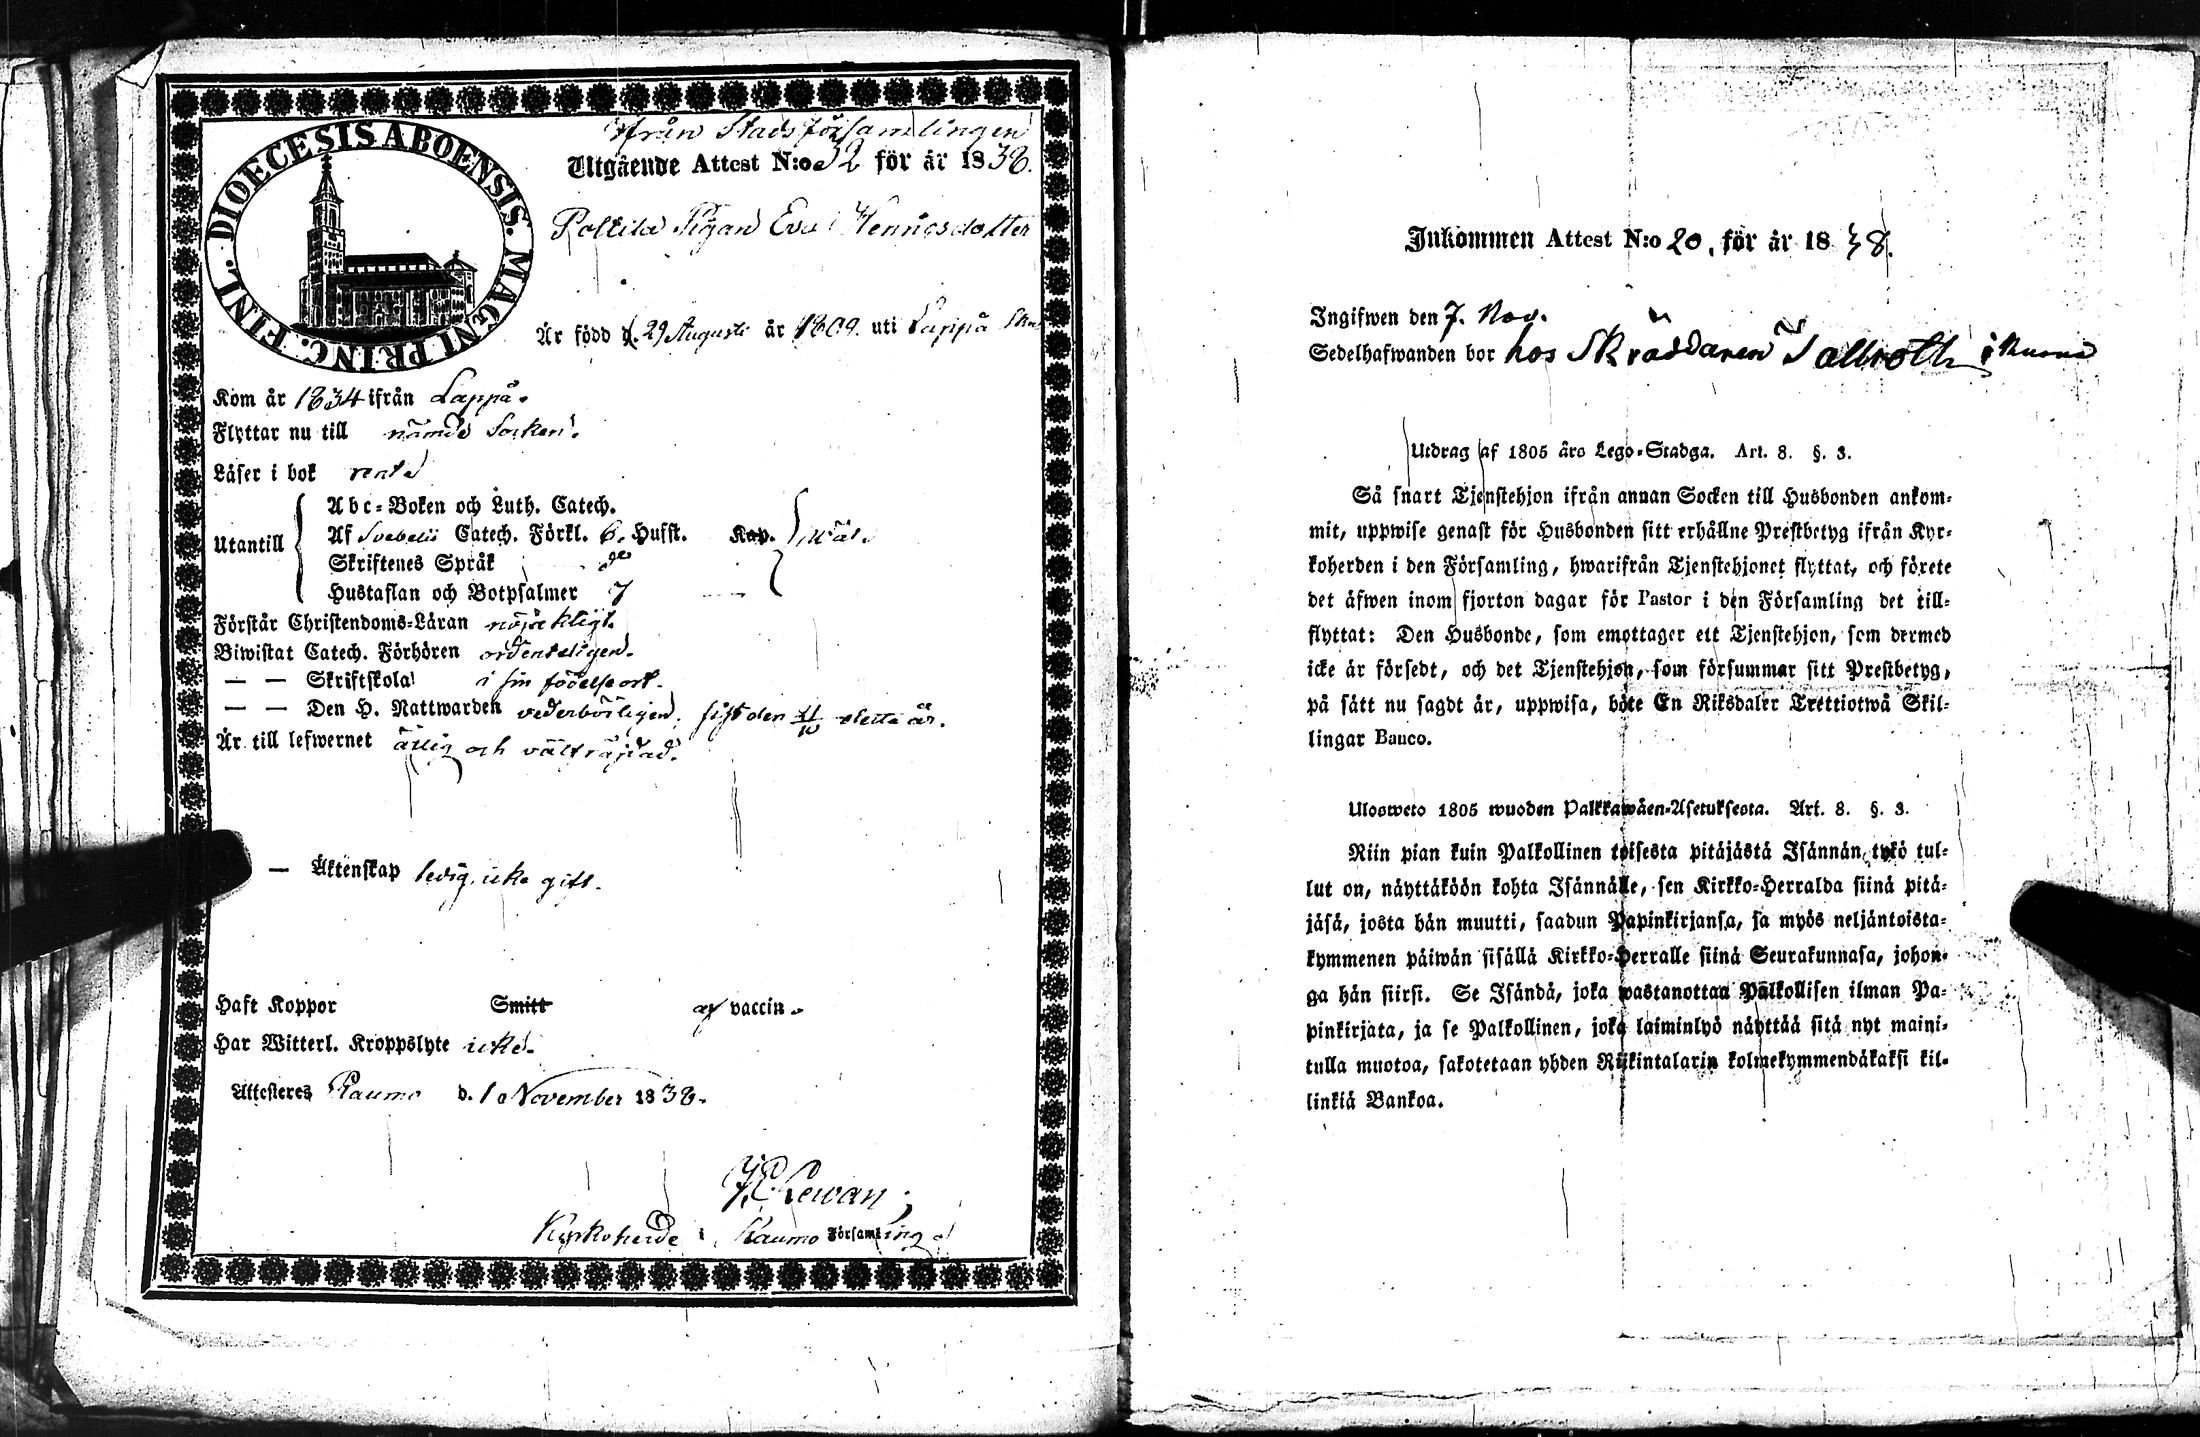 DIOECESIS ABOENSIS. MAGNI PRINC. FINL.
ifrån Stadsförsamlingen
Utgående Attest N:o 32 för år 1838.
Pigan Eva Henricsdotter
Är född d. 29 Augusti år 1809. uti Lappå
Kom år 1834 ifrån Lappå.
Flyttar nu till nämde Socken.
Läser i bok rent
Utantill
Abc-Boken och Luth. Catech.
Af Svebelii Catech. Förkl. 6. Hufst. Kap. wäl.
Skriftenes Språk
Hustaflan och Botpsalmer 7
Förstår Christendoms-Läran nöjaktigt.
Biwistat Catech. Förhören ordenteligen.
— — Skriftskola i sin födelseort.
— — Den H. Nattwarden vederbörligen, sist den 21/10 detta år.
Är till lefwernet ärlig och välfräjdad.
— Äktenskap ledig, icke gift.
Haft Koppor Smitt af vaccin.
Har Witterl. Kroppslyte icke.
Attesteres Raumo d. 1 November 1838.
Kyrkoherde i Raumo Församling.
Inkommen Attest N:o 20, för år 1838.
Ingifwen den 7. Nov.
Sedelhafwanden bor hos Skräddaren Tallroth i
Utdrag af 1805 års Lego-Stadga. Art. 8. §. 3.
Så snart Tjenstehjon ifrån annan Socken till Husbonden ankom-
mit, uppwise genast för Husbonden sitt erhållne Prestbetyg ifrån Kyr-
koherden i den Församling, hwarifrån Tjenstehjonet flyttat, och förete
det äfwen inom fjorton dagar för Pastor i den Församling det till-
flyttat: Den Husbonde, som emottager ett Tjenstehjon, som dermed
icke är försedt, och det Tjenstehjon, som försummar sitt Prestbetyg,
på sätt nu sagdt är, uppwisa, böte En Riksdaler Trettiotwå Skil-
lingar Banco.
Ulosweto 1805 wuoden Palkkawäen-Asetuksesta. Art. 8. §. 3.
Niin pian kuin Palkollinen toisesta pitäjästä Isännän tykö tul-
lut on, näyttäköön kohta Isännälle, sen Kirkko-Herralda siinä pitä-
jäsä, josta hän muutti, saadun Papinkirjansa, ja myös neljäntoista-
kymmenen päiwän sisällä Kirkko-Herralle siinä Seurakunnasa, johon-
ga hän siirsi. Se Isändä, joka wastanottaa Palkollisen ilman Pa-
pinkirjata, ja se Palkollinen, joka laiminlyö näyttää sitä nyt maini-
tulla muotoa, sakotetaan yhden Riikintalarin kolmekymmendäkaksi kil-
linkiä Bankoa.